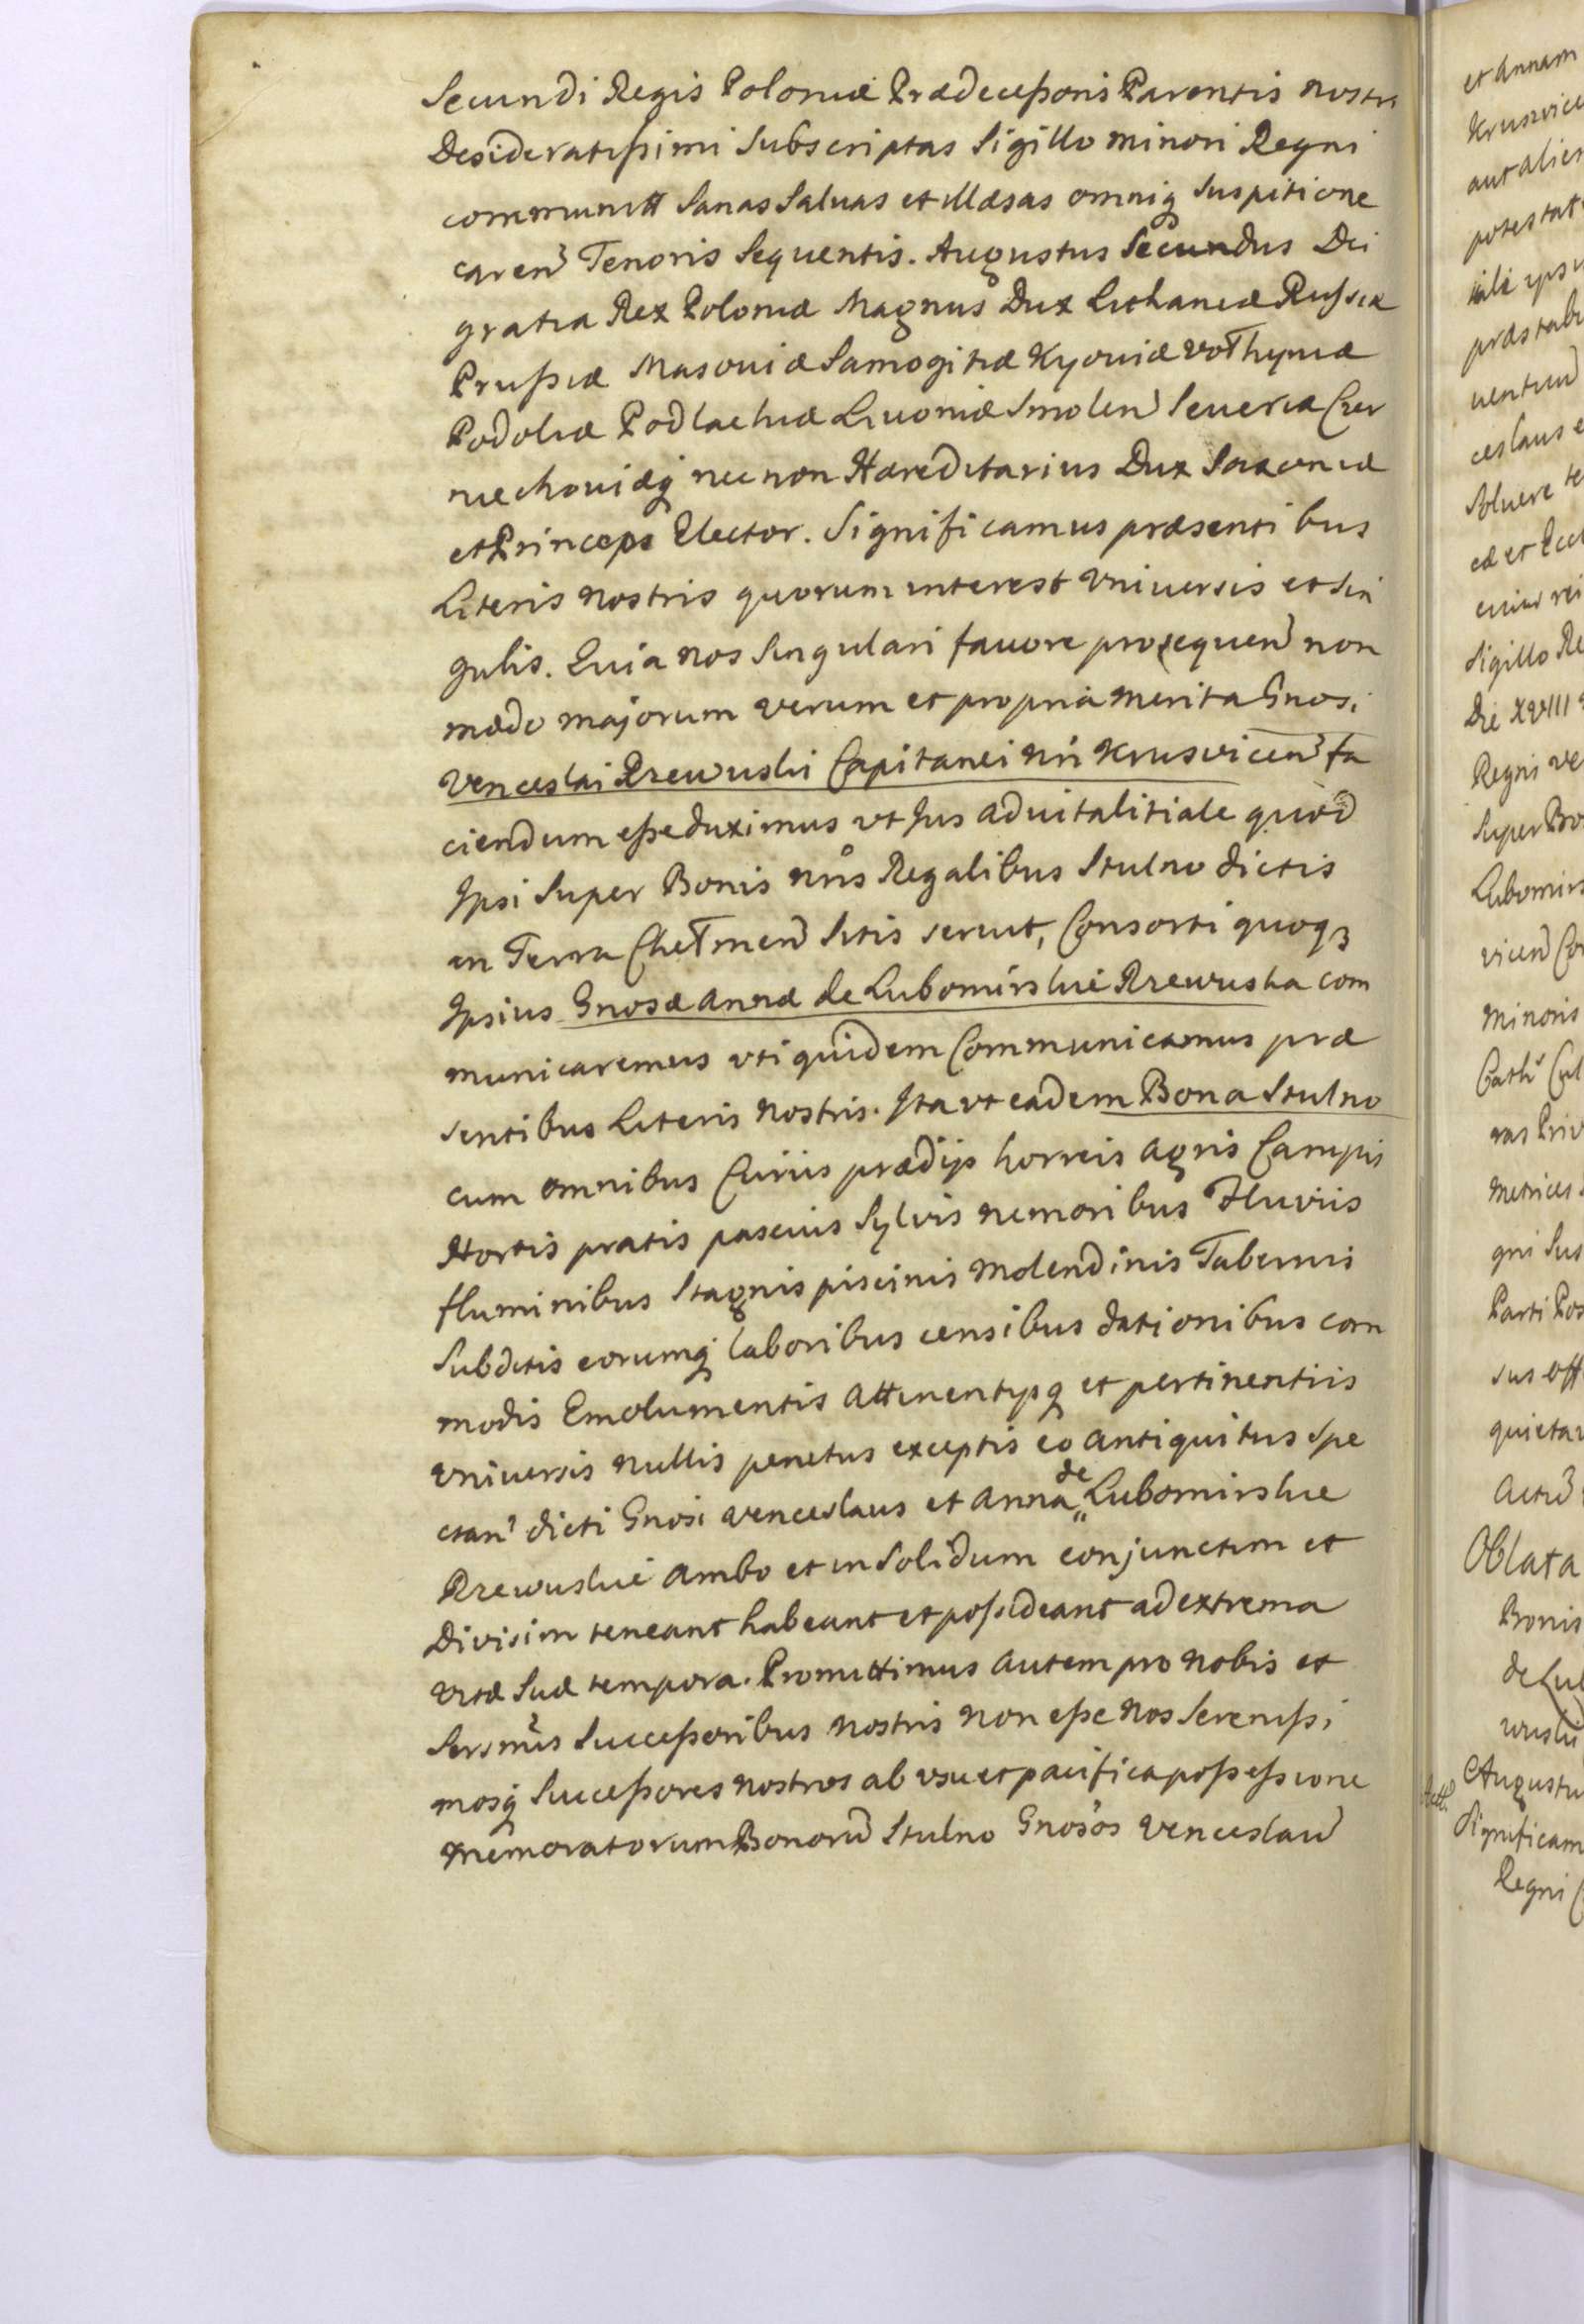 Secundi Regis Poloniæ Prædeceßoris Parentis nostri
Desideratißimi Subscriptas Sigillo minori Regni
communitt Sanas Saluas et illæsas omniq Suspitione
caren Tenoris Sequentis. Augustus Secundus Dei
gratia Rex Poloniæ Magnus Dux Lithaniæ Rußiæ
Prußiæ Masouiæ Samogitiæ Kyouiæ Vołhyniæ
Podoliæ Podlachiæ Liuoniæ Smolen Seueriæ Czer
niechouiæq nec non Hæreditarius Dux Saxoniæ
et Princeps Elector. Significamus præsentibus
Literis nostris quorum interest Vniuersis et Sin
gulis. Quia nos Singulari fauore prosequen non
modo majorum verum et propria merita Gnosi
Venceslai Rzewuski Capitanei nri Krusvicen fa
ciendum eße duximus vt Jus aduitalitiale quod
Ipsi Super Bonis nris Regalibus Stulno dictis
in Terra Chełmen Sitis seruit, Consorti quoq
Ipsius Gnosæ Annæ de Lubomirskie Rzewuska com
municaremus vti quidem Communicamus præ
sentibus Literis nostris. Ita vt eadem Bona Stulno
cum omnibus Curiis prædijs horreis agris Campis
Hortis pratis pascuis Sylvis nemoribus Fluviis
fluminibus Stagnis piscinis Molendinis Tabernis
Subditis eorumq laboribus censibus dationibus com
modis Emolumentis attinentysq et pertinentiis
vniuersis nullis penetus exceptis eo antiquitus spe
ctan dicti Gnosi Venceslaus et Anna de Lubomirskie
Rzewuskie ambo et in Solidum conjunctim et
Divisim teneant habeant et poßideant ad extrema
vitæ Suæ tempora. Promittimus autem pro nobis et
Sersmis Succeßoribus nostris non eße nos Serenißi
mosq Succeßores nostros ab vsu et pacifica poßeßione
memoratorum Bonorū Stulno Gnosos Venceslaū
et Annam
potestat
præstab
ceslaus e
Soluere te
sigillo Re
Die XVIII
Regni ve
Super Bo
Lubomirs
vicen Co
Minoris
Metrices
gni Sus
Parti Pos
quietan
Oblata
Bonis
de Lub
Augustu
Significam
Regni